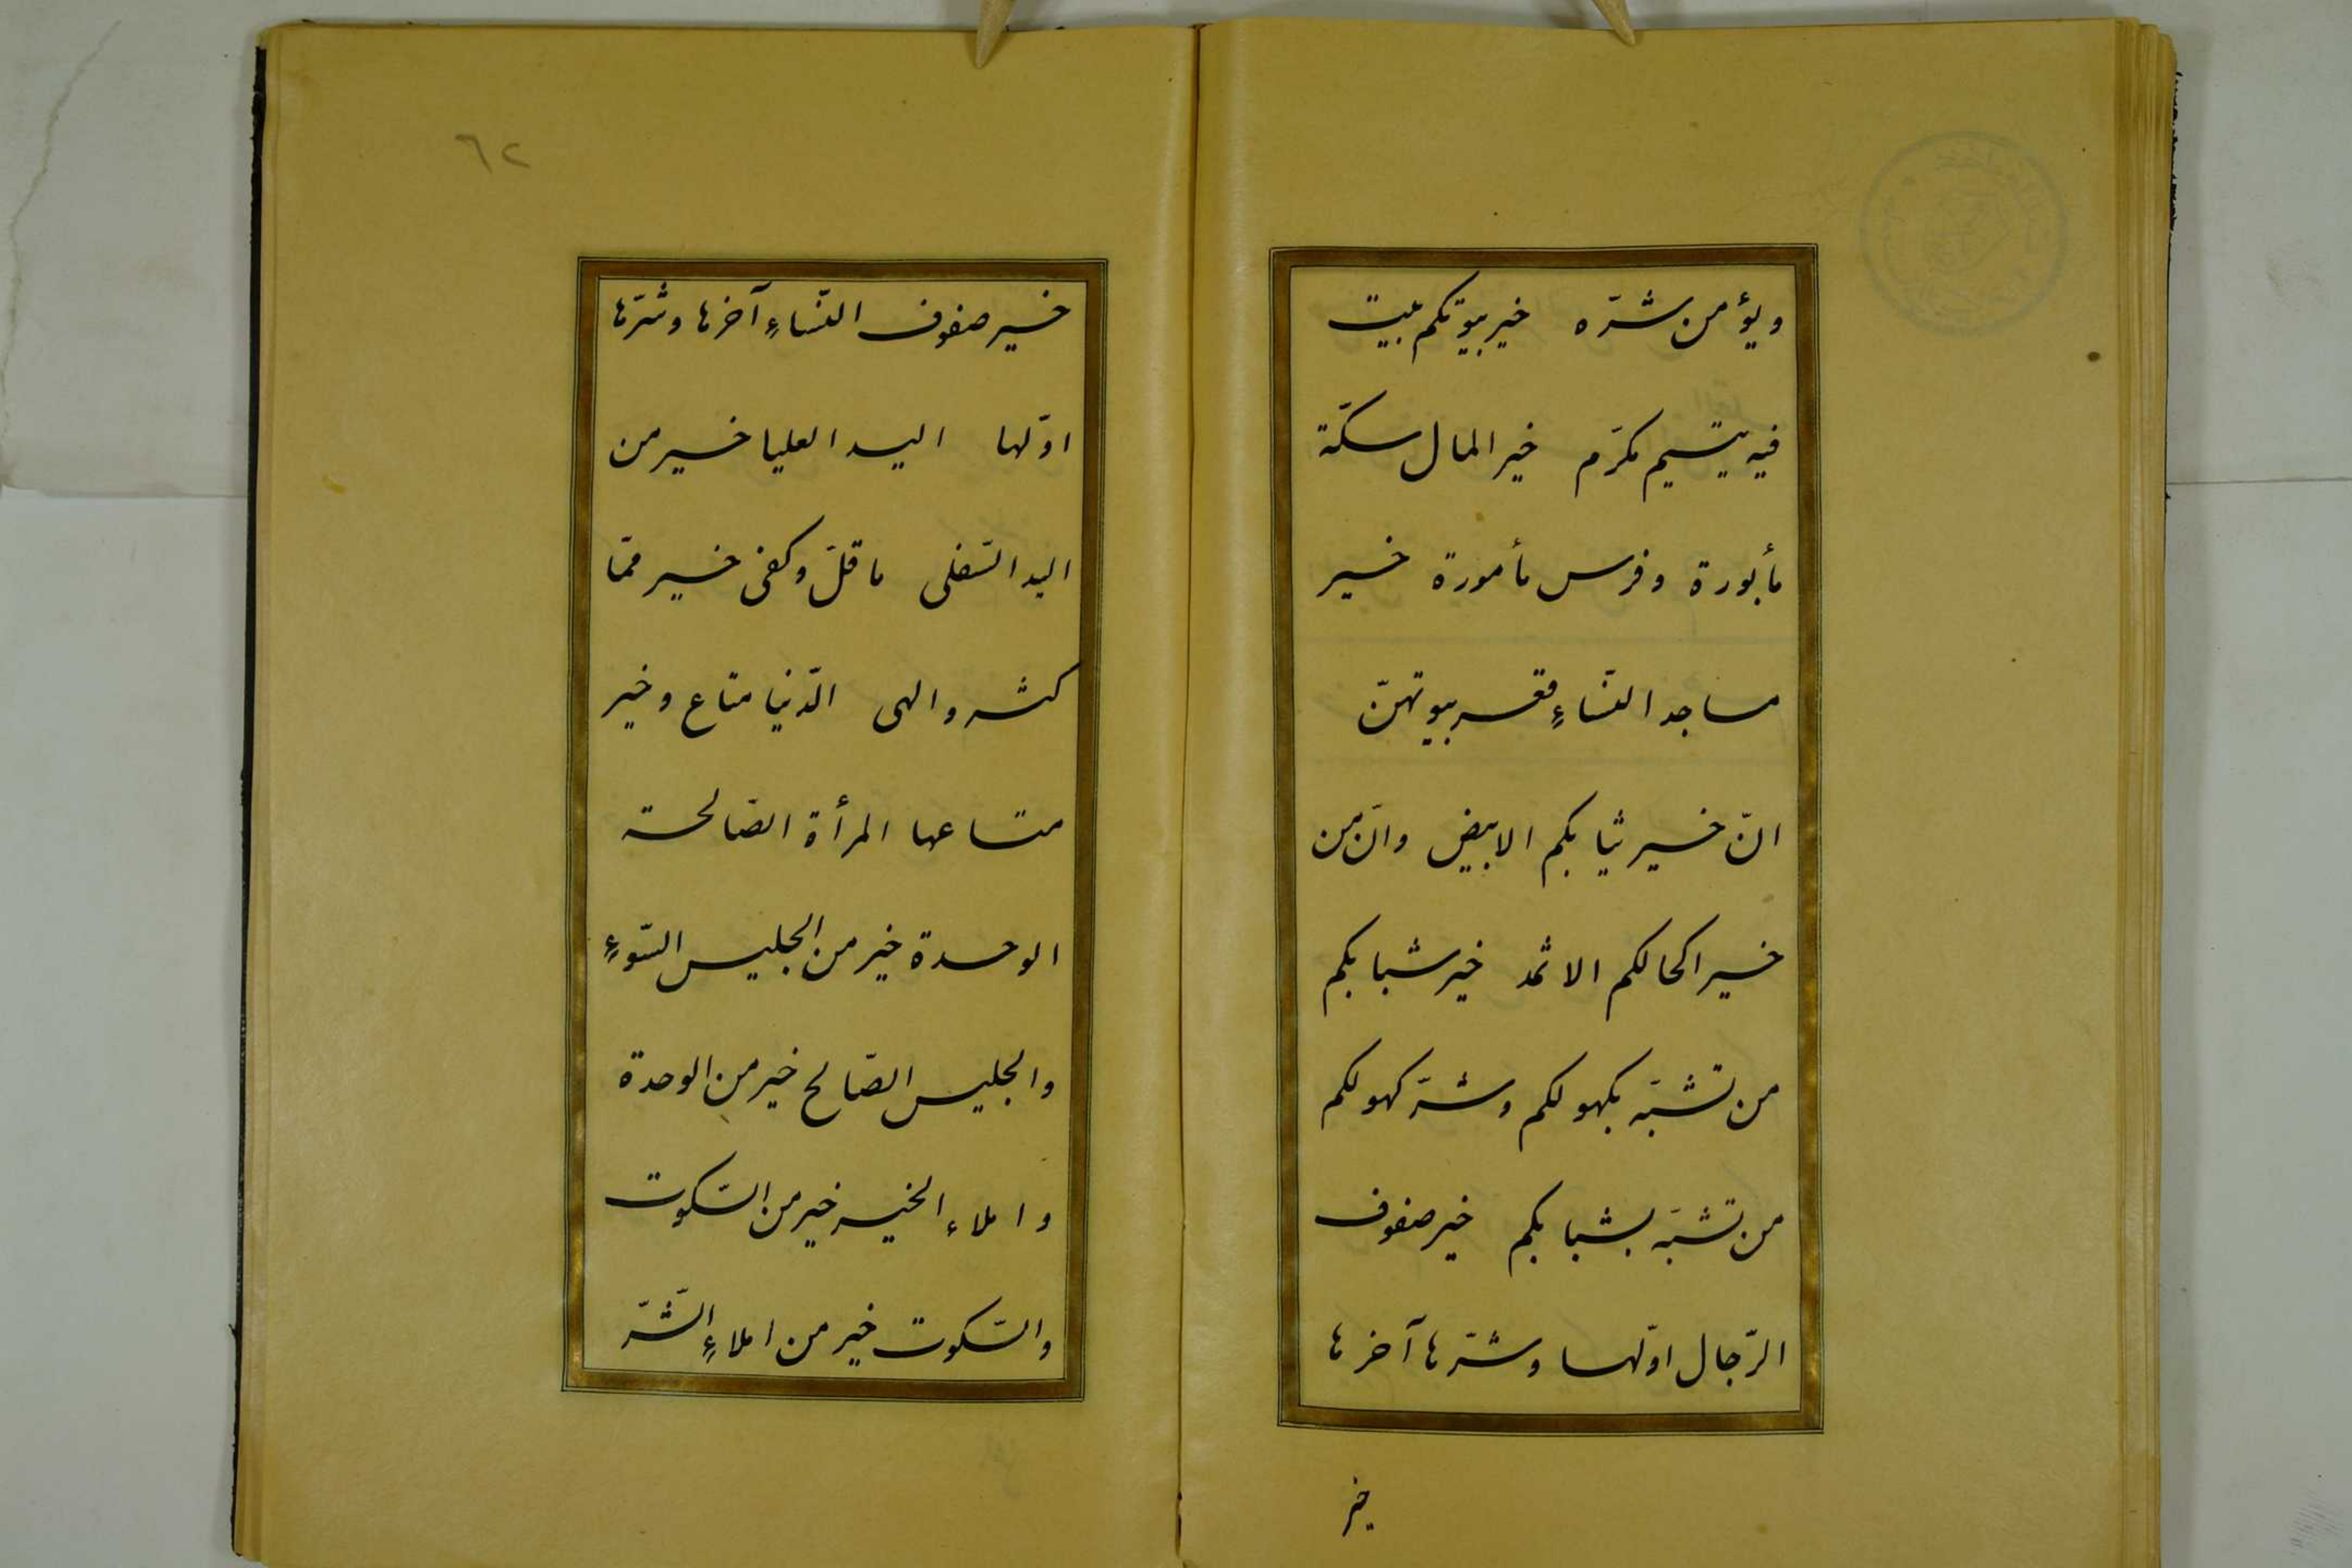 ويؤمن شرّه خير بيوتكم بيت
فيه يتيم مكرّم خير المال سكّة
مأبورة وفرس مأمورة خير
مساجد النّساءِ قعر بيوتهنّ
انّ خير ثيابكم الابيض وانّ من
خير اكحالكم الاثمد خير شبابكم
من تشبّه بكهولكم وشرّ كهولكم
من تشبّه بشبابكم خير صفوف
الرّجال اوّلها وشرّها آخرها
خير
٦٢
خير صفوف النّساءِ آخرها وشرّها
اوّلها اليد العليا خير من
اليد السّفلى ما قلّ وكفى خير ممّا
كثر والهى الدّنيا متاع وخير
متاعها المرأة الصّالحة
الوحدة خير من الجليس السّوءِ
والجليس الصّالح خير من الوحدة
واملاء الخير خير من السّكوت
والسّكوت خير من املاءِ الشّرّ